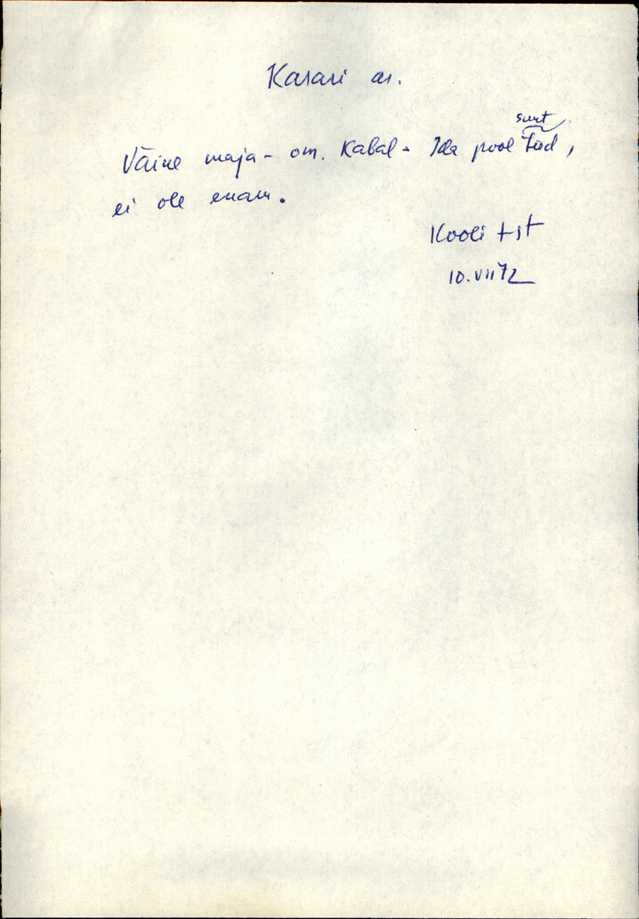 Kasari as.
Väine maja - om. Kabal - Ida pool suurt teed,
ei ole enam.
Kooli
10. VII 72